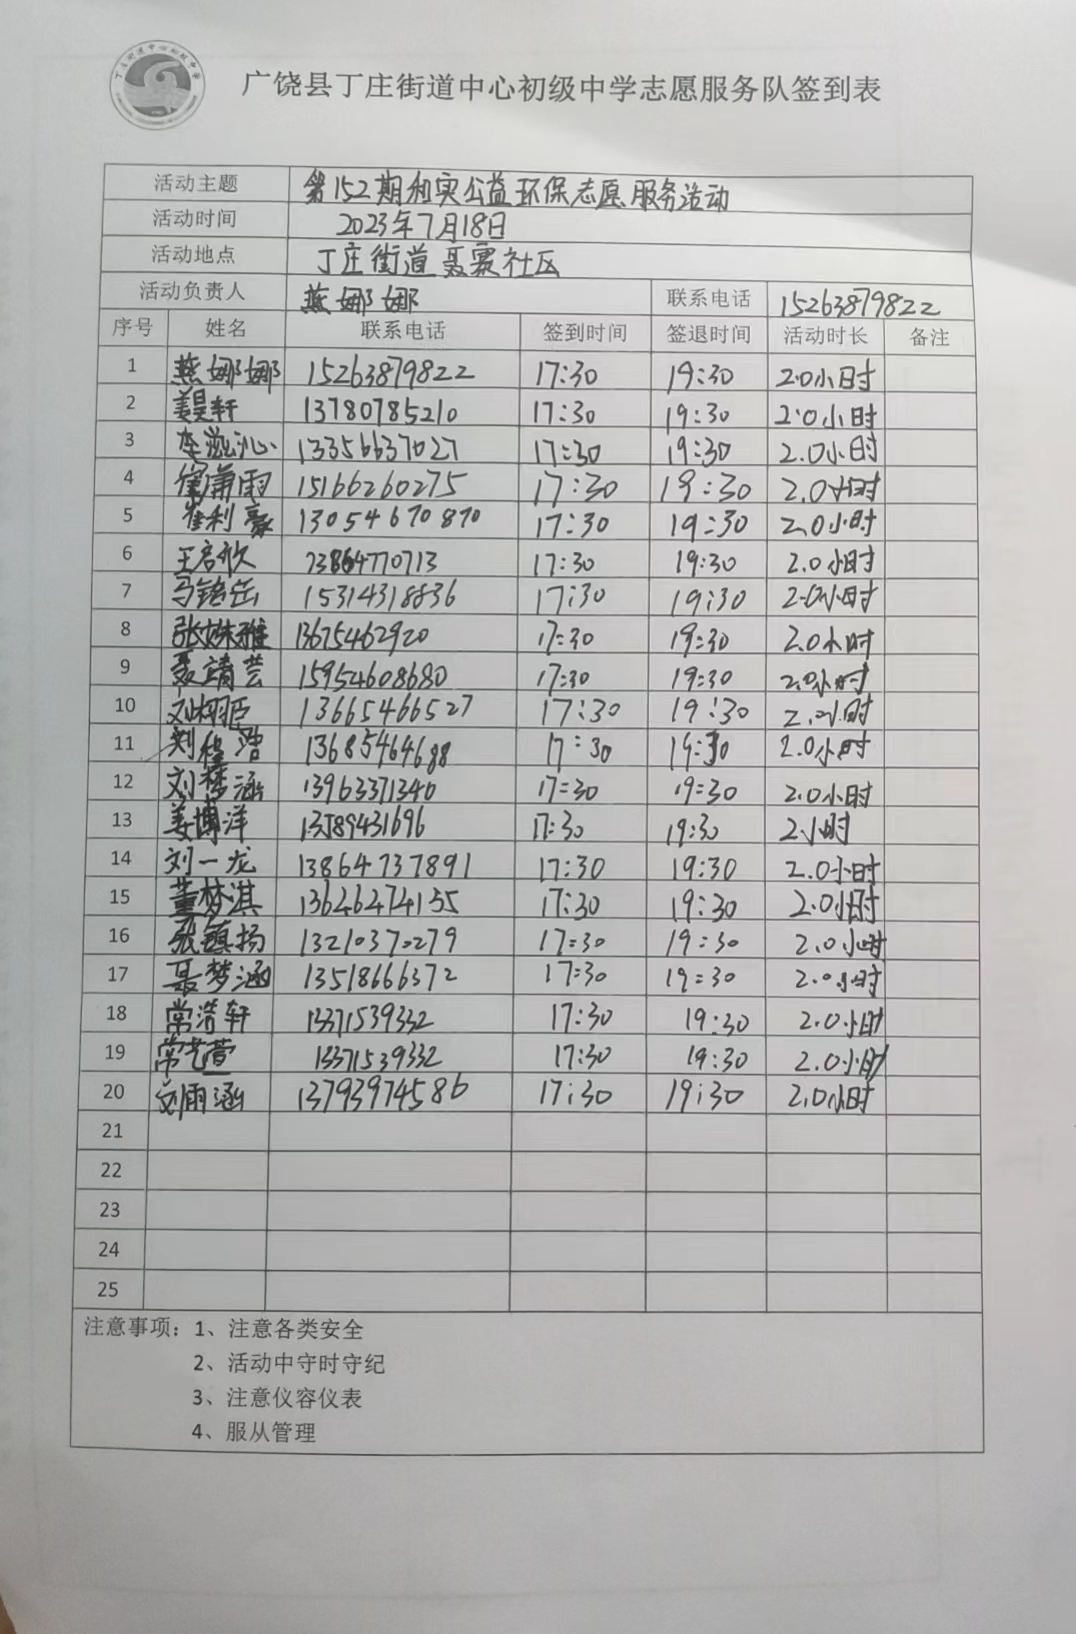 广饶县丁庄街道中心初级中学志愿服务队签到表
活动主题 第152期和实公益环保志愿服务活动
活动时间 2023年7月18日
活动地点 丁庄街道聂寨社区
活动负责人 燕娜娜 联系电话 15263879822
序号 姓名 联系电话 签到时间 签退时间 活动时长 备注
1 燕娜娜 15263879822 17:30 19:30 2.0小时
2 姜昊轩 13780785210 17:30 19:30 2.0小时
3 李滋沁 13356637027 17:30 19:30 2.0小时
4 雨 15166260275 17:30 19:30 2.0小时
5 崔利豪 13054670870 17:30 19:30 2.0小时
6 王启欣 13864770713 17:30 19:30 2.0小时
7 马铭岳 15314318836 17:30 19:30 2.0小时
8 张姝雅 13675462920 17:30 19:30 2.0小时
9 聂靖芸 15954608680 17:30 19:30 2.0小时
10 刘栩臣 13665466527 17:30 19:30 2.0小时
11 刘 浩 13685464688 17:30 19:30 2.0小时
12 刘梦涵 13963371340 17:30 19:30 2.0小时
13 姜博洋 13589431696 17:30 19:30 2小时
14 刘一龙 13864737891 17:30 19:30 2.0小时
15 董梦淇 13646474155 17:30 19:30 2.0小时
16 张镇扬 13210370279 17:30 19:30 2.0小时
17 聂梦涵 13518666372 17:30 19:30 2.0小时
18 常浩轩 13371539332 17:30 19:30 2.0小时
19 常艺萱 13371539332 17:30 19:30 2.0小时
20 刘雨涵 13793974586 17:30 19:30 2.0小时
21
22
23
24
25
注意事项：1、注意各类安全
2、活动中守时守纪
3、注意仪容仪表
4、服从管理